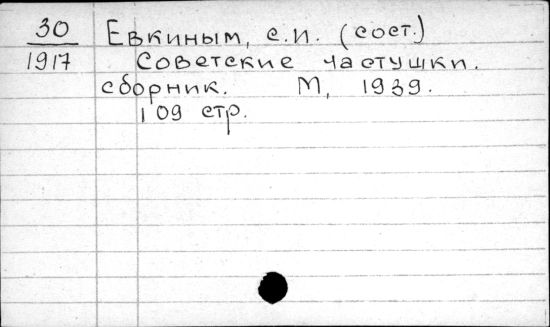 30 Евкиным, с.и. (сост.)
1917 Советские частушки.
сборник. М, 1939.
109 стр.